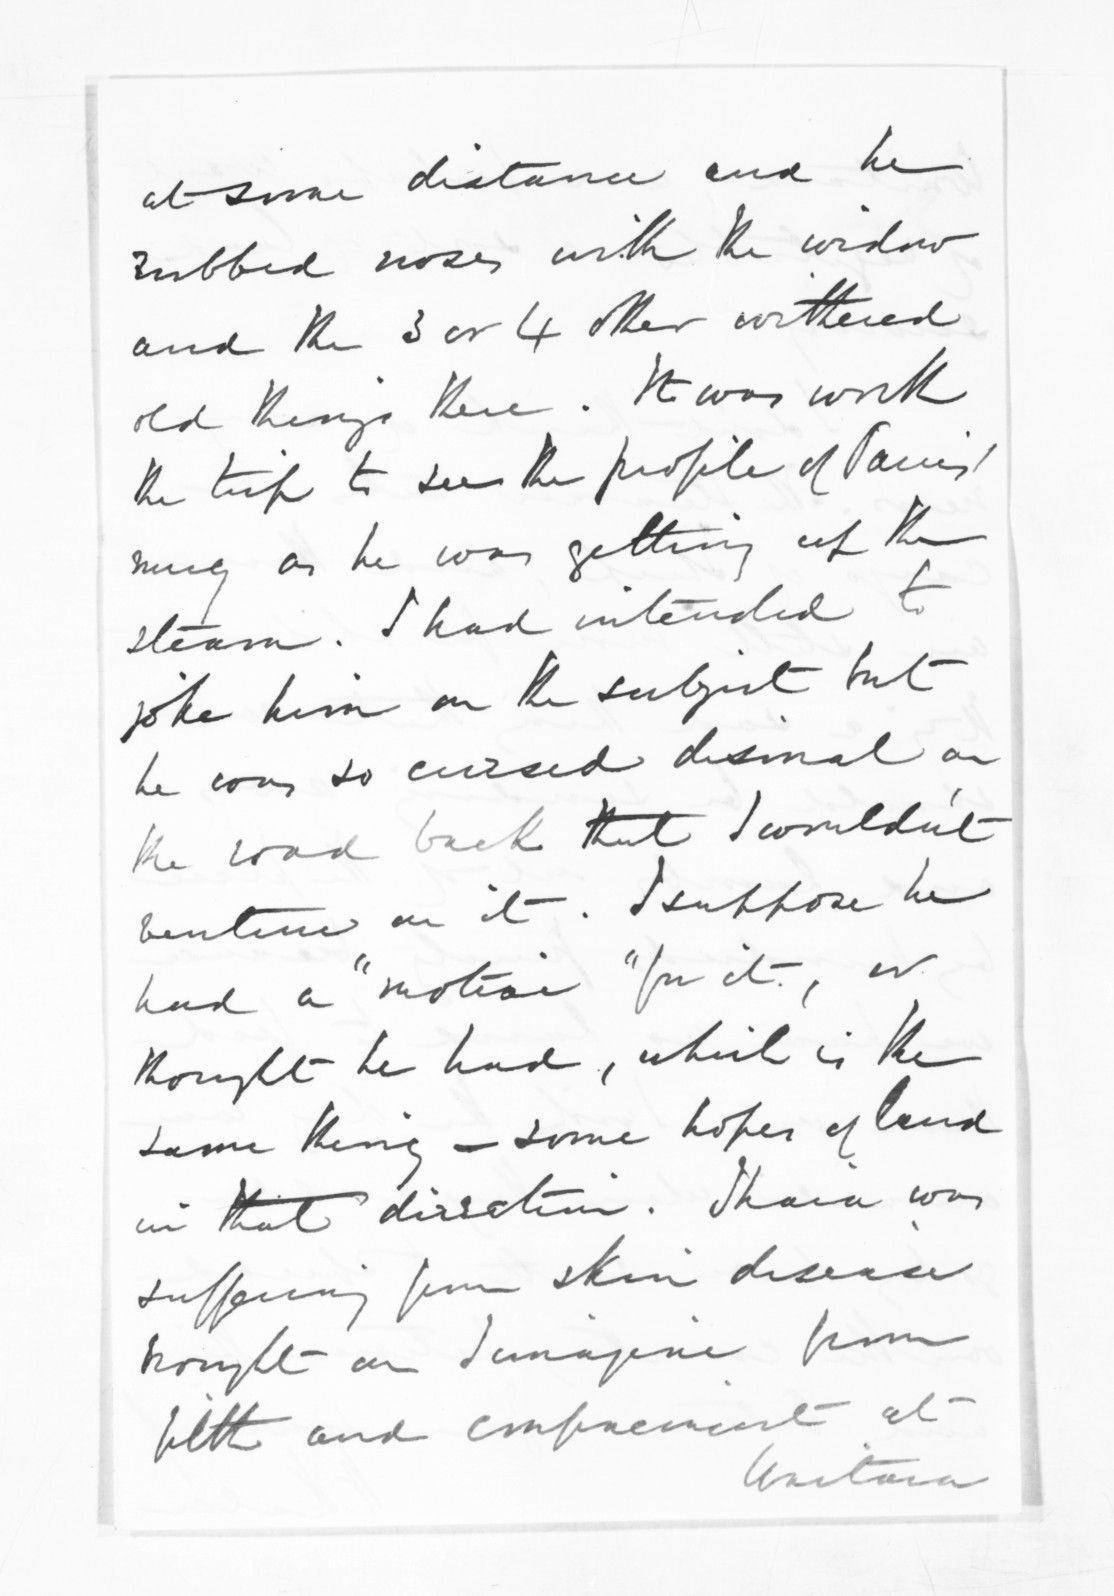 at some distance and he
rubbed noses with the widow
and the 3 or 4 other withered
old things there. It was worth
the trip to see the profile of Parris'
mug as he was getting up the
steam. I had intended to
joke him on the subject but
he was so cursed dismal on
the road back that I wouldn't
venture on it. I suppose he
had a "motive" for it, or
thought he had, which is the
same thing - some hopes of land
in that direction. Ihaia was
suffering from skin disease
brought on I imagine from
filth and confinement at
Waitara